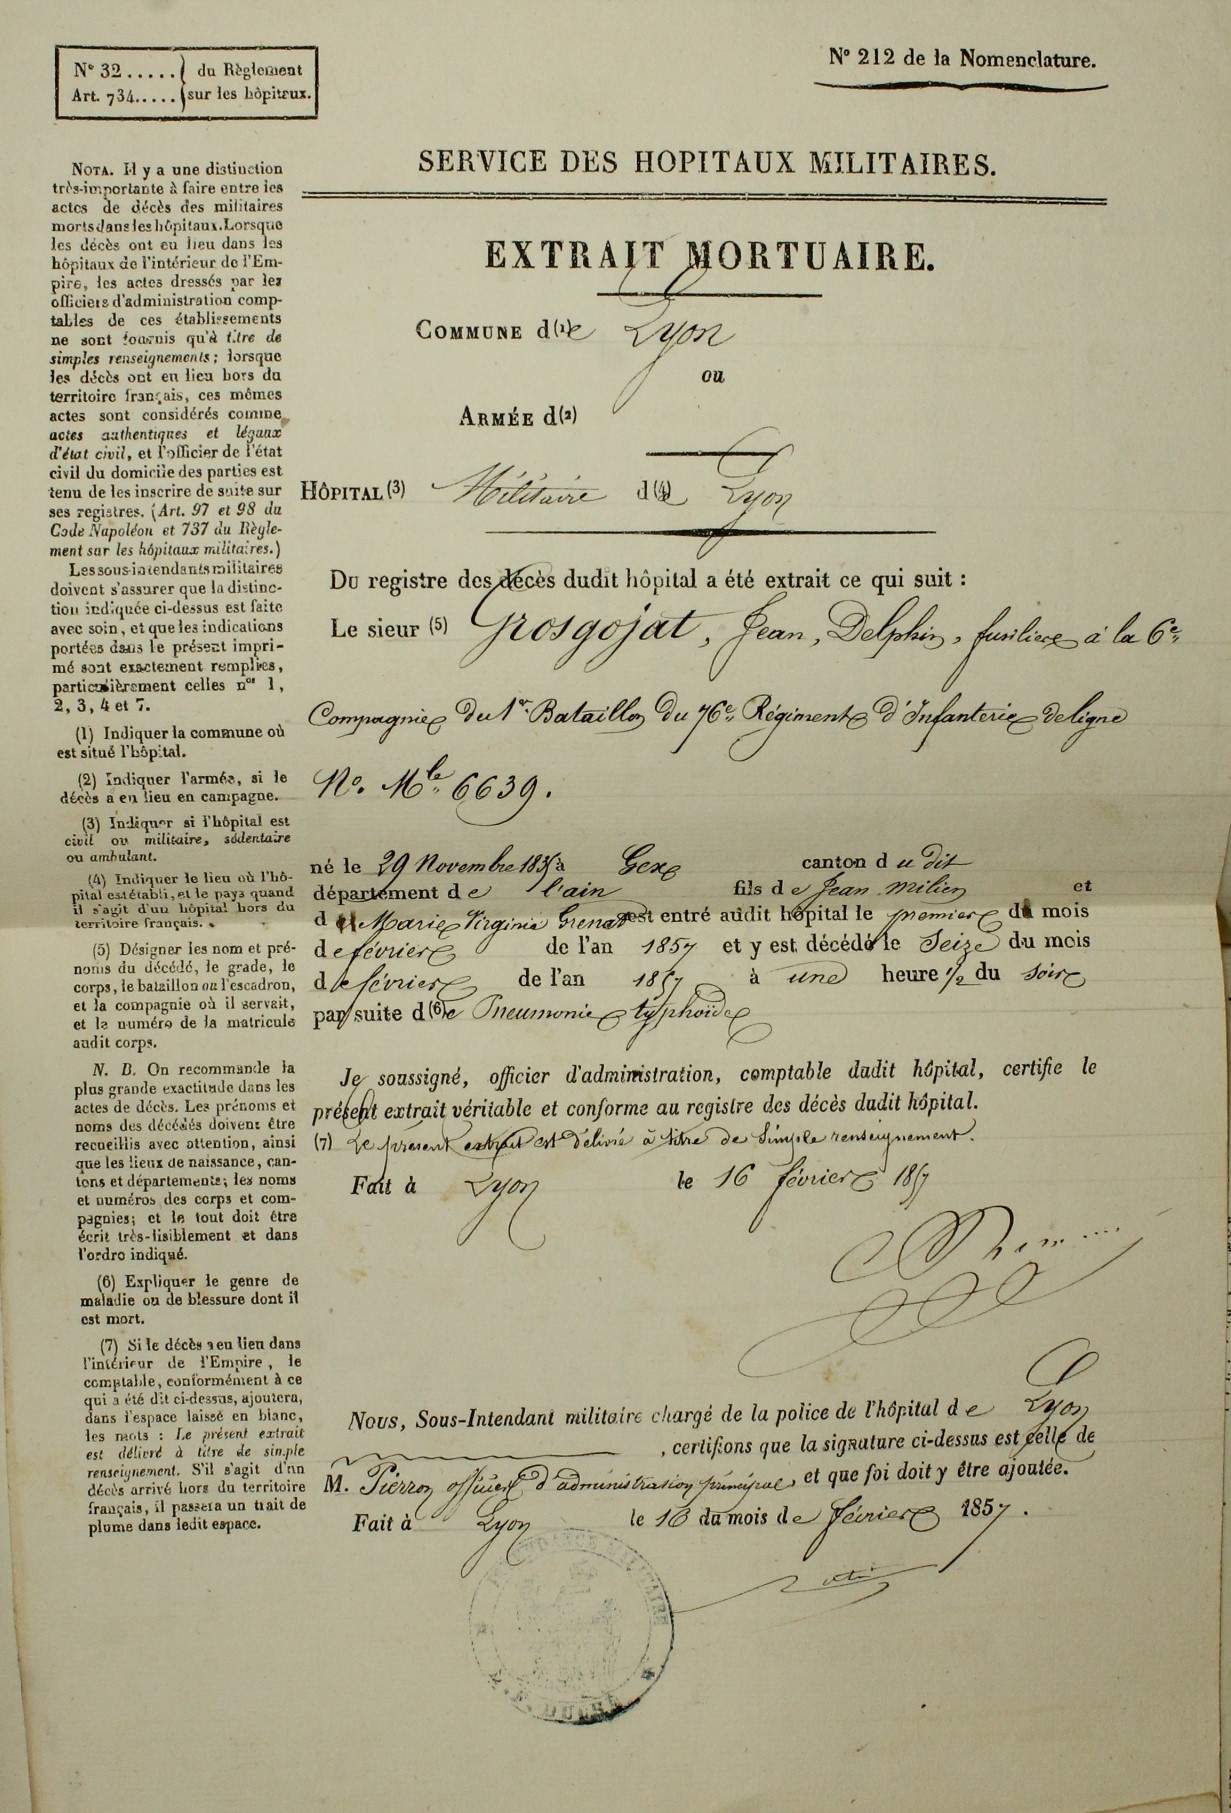 N° 32 ..... } du Règlement
Art. 734..... } sur les hôpitaux.
N° 212 de la Nomenclature.
SERVICE DES HOPITAUX MILITAIRES.
EXTRAIT MORTUAIRE.
COMMUNE d(1)e Lyon
ou
ARMÉE d(2)
HÔPITAL (3) Militaire d(4)e Lyon
Du registre des décès dudit hôpital a été extrait ce qui suit :
Le sieur (5) Grosgojat, Jean, Delphin, fusilier à la 6e
Compagnie du 1er Bataillon du 76e Régiment d'Infanterie de ligne
No. Mle 6639.
né le 29 Novembre 1835 à Gex canton du dit
département de l'ain fils de Jean Milien et
d Marie Virginie Grenat est entré audit hôpital le premier du mois
de février de l'an 1857 et y est décédé le Seize du mois
de février de l'an 1857 à une heure 1/2 du soir
par suite d(6)e Pneumonie typhoïde
Je soussigné, officier d'administration, comptable dudit hôpital, certifie le
présent extrait véritable et conforme au registre des décès dudit hôpital.
(7) Le présent extrait est délivré à titre de Simple renseignement.
Fait à Lyon le 16 février 1857
Nous, Sous-Intendant militaire chargé de la police de l'hôpital de Lyon
, certifions que la signature ci-dessus est celle de
M. Pierron officier d'administration principal, et que foi doit y être ajoutée.
Fait à Lyon le 16 du mois de février 1857.
INTENDANCE MILITAIRE
NOTA. Il y a une distinction
très-importante à faire entre les
actes de décès des militaires
morts dans les hôpitaux. Lorsque
les décès ont eu lieu dans les
hôpitaux de l'intérieur de l'Em-
pire, les actes dressés par les
officiers d'administration comp-
tables de ces établissements
ne sont fournis qu'à titre de
simples renseignements ; lorsque
les décès ont eu lieu hors du
territoire français, ces mêmes
actes sont considérés comme
actes authentiques et légaux
d'état civil, et l'officier de l'état
civil du domicile des parties est
tenu de les inscrire de suite sur
ses registres. (Art. 97 et 98 du
Code Napoléon et 737 du Règle-
ment sur les hôpitaux militaires.)
Les sous-intendants militaires
doivent s'assurer que la distinc-
tion indiquée ci-dessus est faite
avec soin, et que les indications
portées dans le présent impri-
mé sont exactement remplies,
particulièrement celles nos 1,
2, 3, 4 et 7.
(1) Indiquer la commune où
est situé l'hôpital.
(2) Indiquer l'armée, si le
décès a eu lieu en campagne.
(3) Indiquer si l'hôpital est
civil ou militaire, sédentaire
ou ambulant.
(4) Indiquer le lieu où l'hô-
pital est établi, et le pays quand
il s'agit d'un hôpital hors du
territoire français.
(5) Désigner les nom et pré-
noms du décédé, le grade, le
corps, le bataillon ou l'escadron,
et la compagnie où il servait,
et le numéro de la matricule
audit corps.
N. B. On recommande la
plus grande exactitude dans les
actes de décès. Les prénoms et
noms des décédés doivent être
recueillis avec attention, ainsi
que les lieux de naissance, can-
tons et départements; les noms
et numéros des corps et com-
pagnies; et le tout doit être
écrit très-lisiblement et dans
l'ordre indiqué.
(6) Expliquer le genre de
maladie ou de blessure dont il
est mort.
(7) Si le décès a eu lieu dans
l'intérieur de l'Empire, le
comptable, conformément à ce
qui a été dit ci-dessus, ajoutera,
dans l'espace laissé en blanc,
les mots : Le présent extrait
est délivré à titre de simple
renseignement. S'il s'agit d'un
décès arrivé hors du territoire
français, il passera un trait de
plume dans ledit espace.